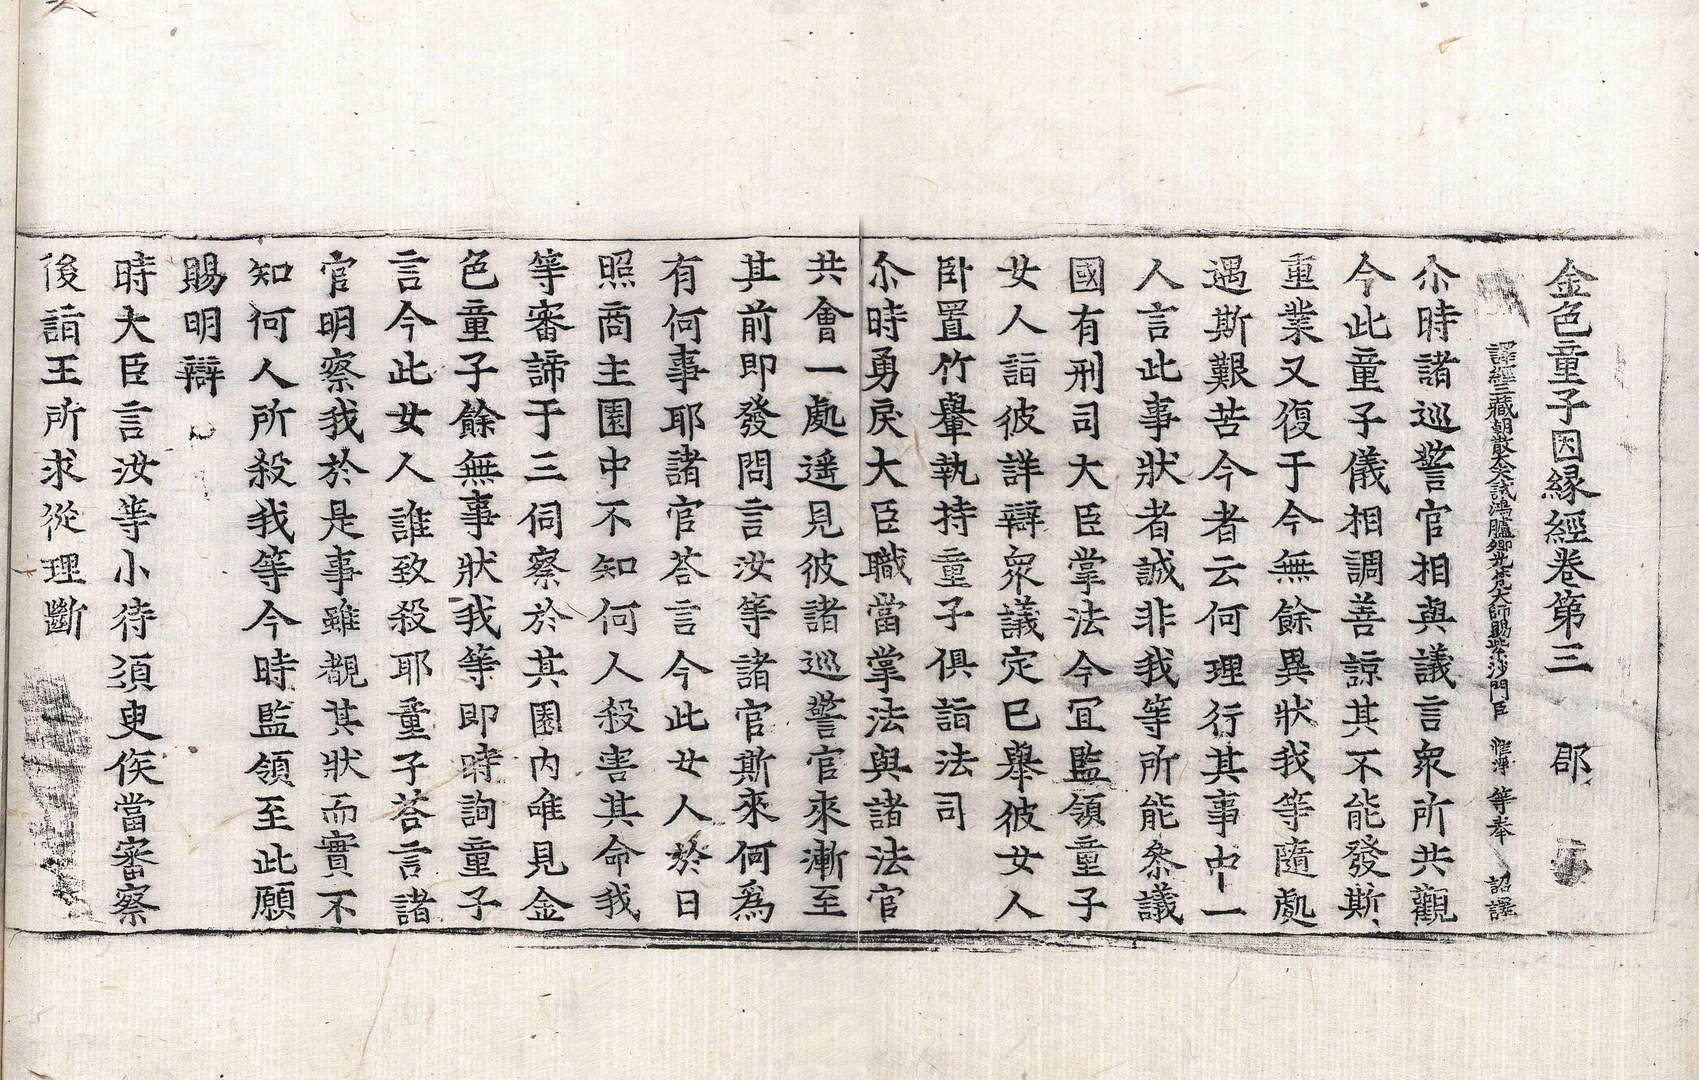 金色童子因縁經卷第三 郡
譯經三藏朝散大夫試鴻臚卿光梵大師賜紫沙門臣 惟淨 等奉 詔譯
尒時諸巡警官相與議言衆所共觀
今此童子儀相調善諒其不能發斯
重業又復于今無餘異狀我等隨處
遇斯艱苦今者云何理行其事中一
人言此事狀者誠非我等所能叅議
國有刑司大臣掌法今冝監領童子
女人詣彼詳辯衆議定已舉彼女人
卧置竹轝執持童子俱詣法司
尒時勇戾大臣職當掌法與諸法官
共會一處遥見彼諸巡警官來漸至
其前即發問言汝等諸官斯來何爲
有何事耶諸官荅言今此女人於日
照商主園中不知何人殺害其命我
等審諦于三伺察於其園内唯見金
色童子餘無事狀我等即時詢童子
言今此女人誰致殺耶童子荅言諸
官明察我於是事雖覩其狀而實不
知何人所殺我等今時監領至此願
賜明辯
時大臣言汝等小待須臾俟當審察
後詣王所求從理斷